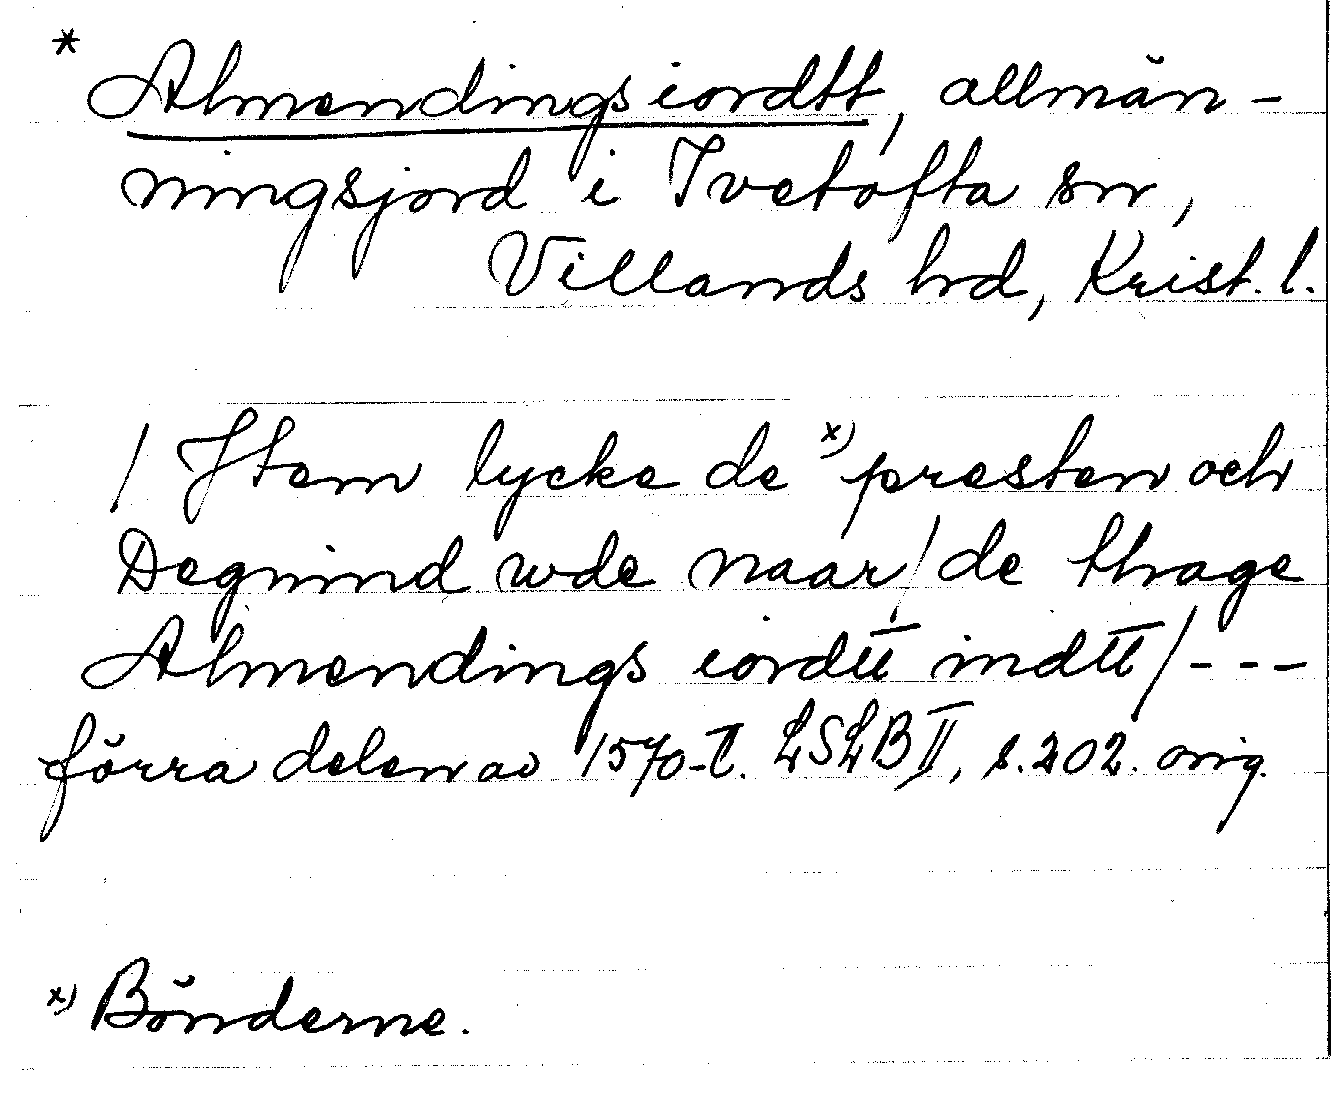 * Almendings iordtt, allmän-
ningsjord i Ivetofta sn,
Villands hd, Krist. l.
/ Item lycke de x) presten och
Degnind wde naar / de thage
Almendings iordtt indtt / ---
förra delen av 1570-t. LSLB II, s. 202. orig.
x) Bönderne.